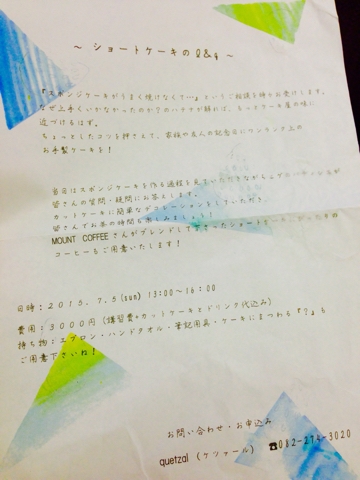 ～ ショートケーキの Q&A ～
『スポンジケーキがうまく焼けなくて…』というご相談を時々お受けします。
なぜ上手くいかなかったのか？のハテナが解れば、もっとケーキ屋の味に
近づけるはず。
ちょっとしたコツを押さえて、家族や友人の記念日にワンランク上の
お手製ケーキを！
当日はスポンジケーキを作る過程を見ていただきながら
皆さんの質問・疑問にお答えします。
カットケーキに簡単なデコレーションをしていただき、
皆さんでお茶の時間も楽しみましょう！
MOUNT COFFEEさんがブレンドして下さったショートケーキに
コーヒーもご用意いたします！
日時：2015. 7.5(sun) 13:00～16:00
費用：3000円（講習費+カットケーキとドリンク代込み）
持ち物：エプロン・ハンドタオル・筆記用具・ケーキにまつわる『？』も
ご用意下さいね！
お問い合わせ・お申込み
quetzal （ケツァール） ☎082-274-3020